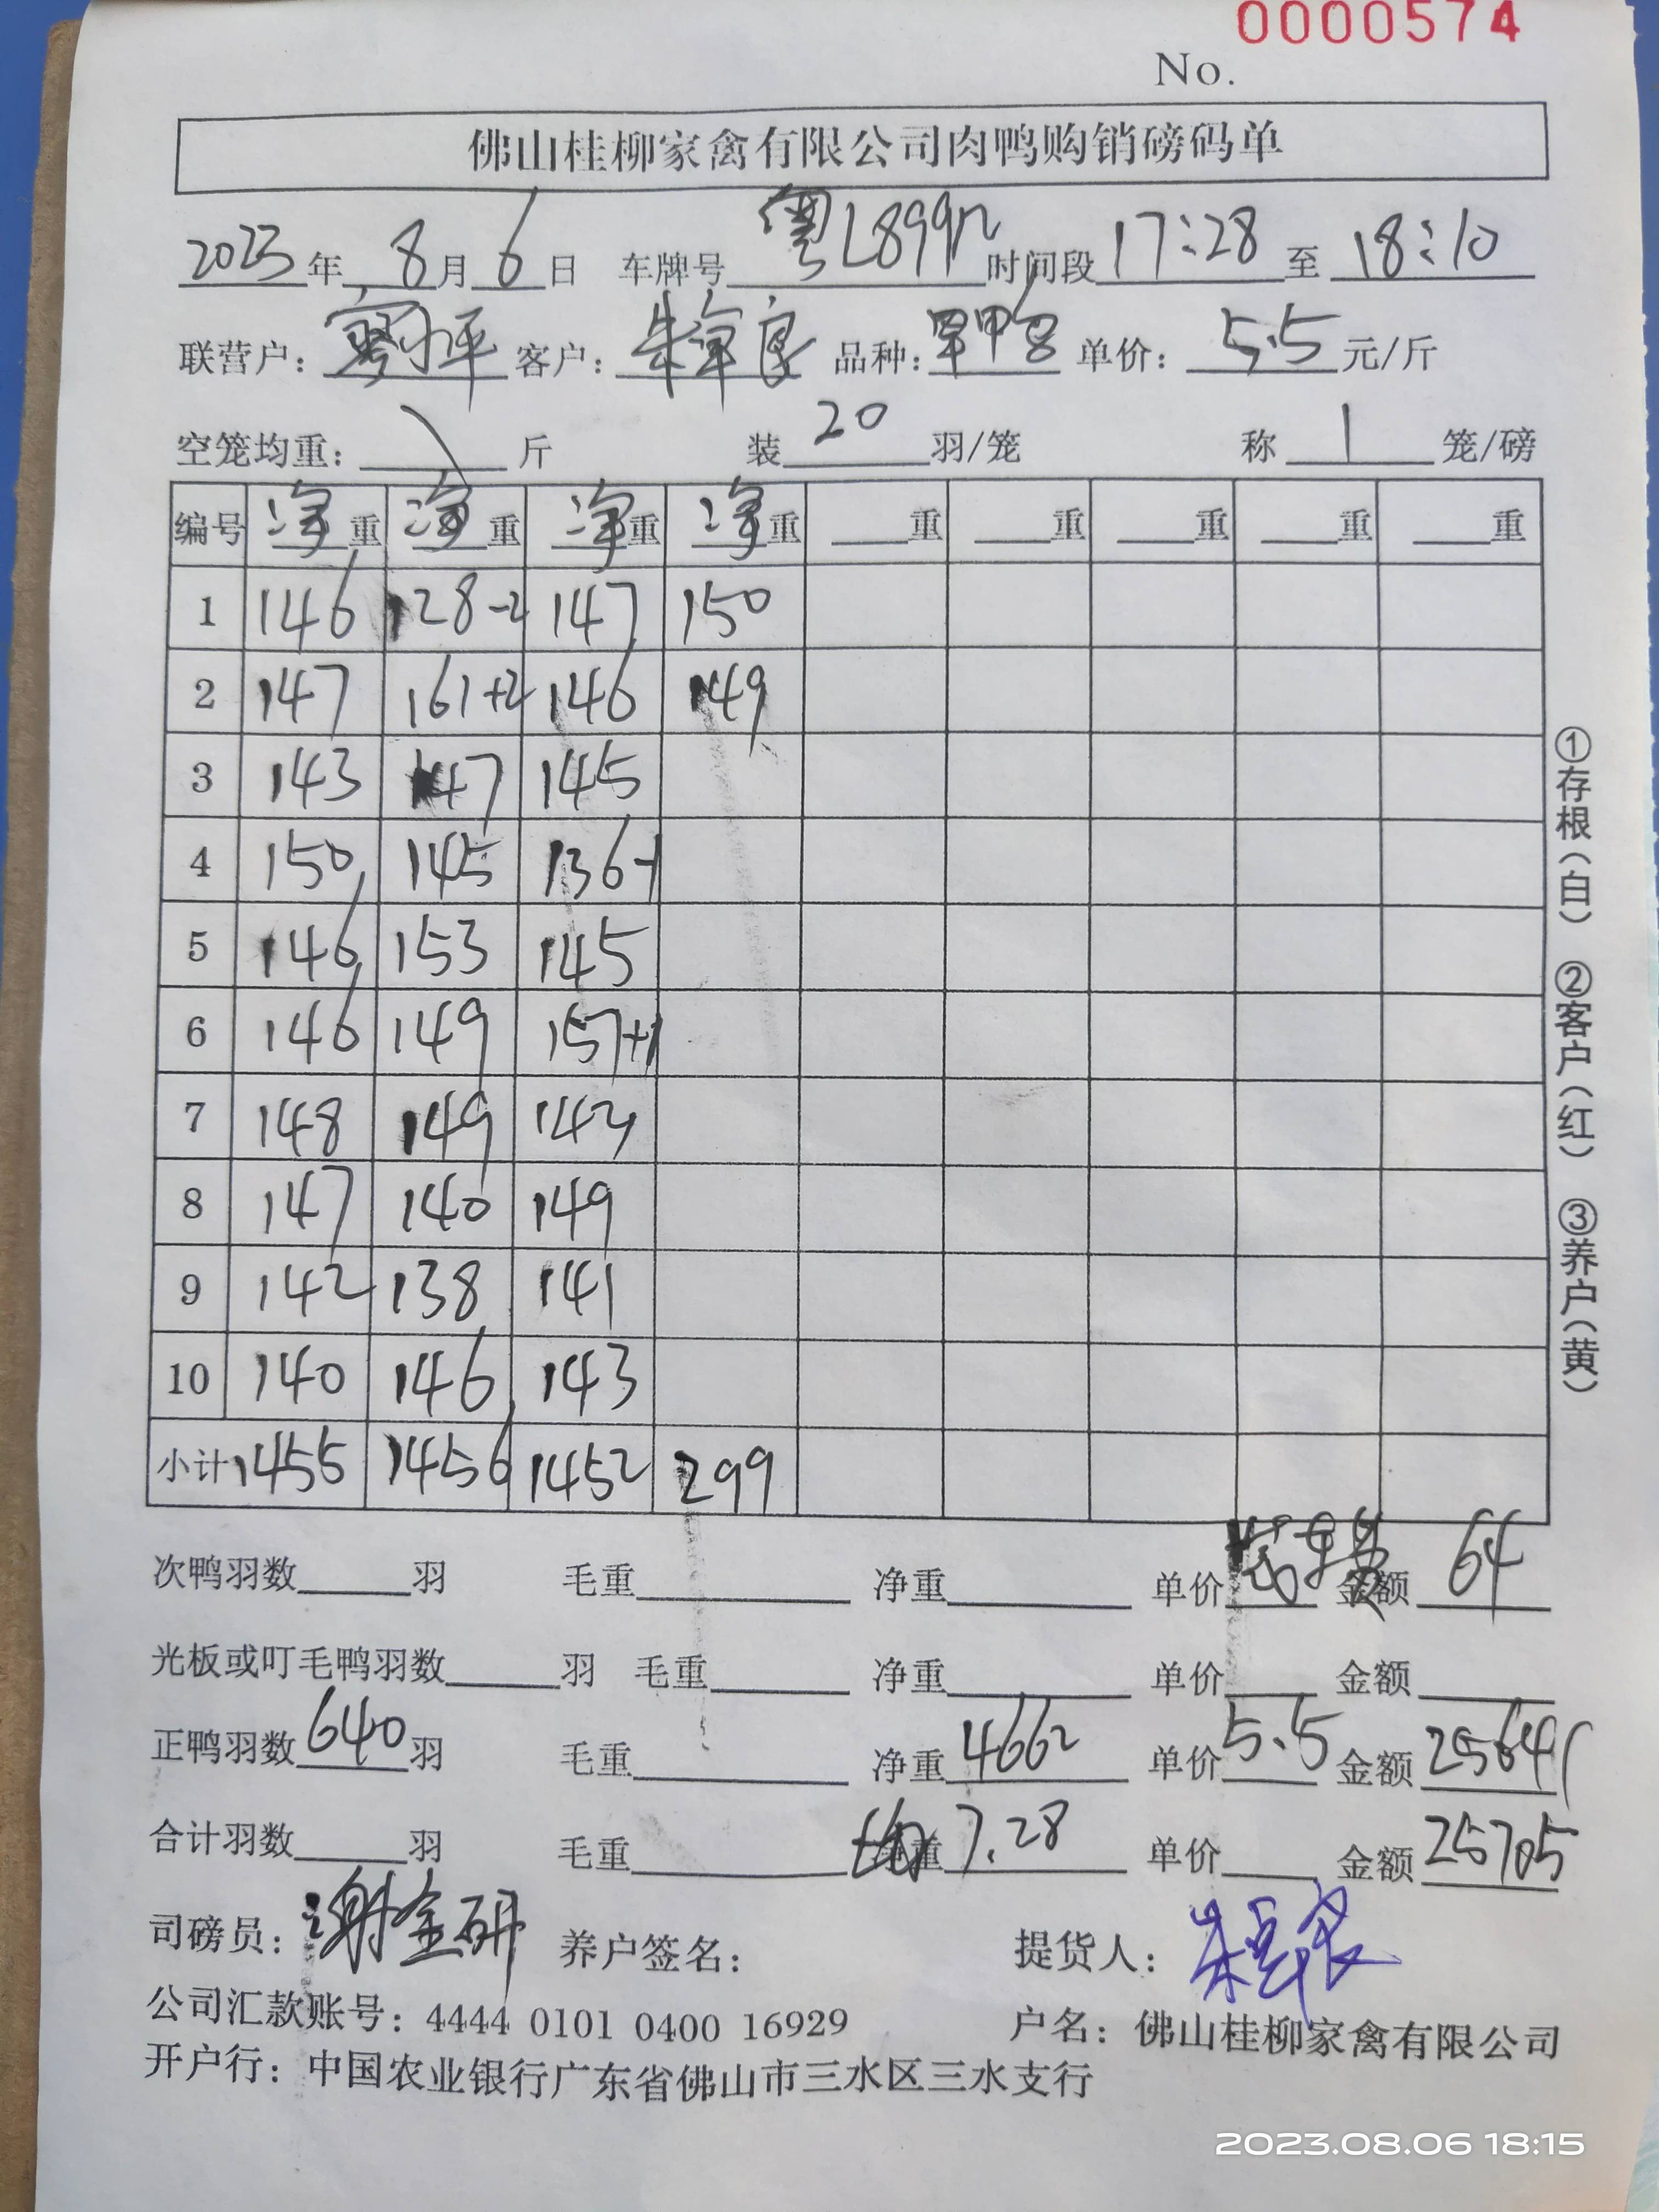 0000574
No.
佛山桂柳家禽有限公司肉鸭购销磅码单
2023年 8月 6日 车牌号 粤L899 时间段 17:28 至 18:10
联营户: 廖小平 客户: 朱卓良 品种: 单价: 5.5 元/斤
空笼均重: \ 斤 装 20 羽/笼 称 1 笼/磅
编号 净重 净重 净重 净重 重 重 重 重 重
1 146 128-2 147 150
2 147 161+2 146 149
3 143 147 145
4 150 145 136-1
5 146 153 145
6 146 149 157+1
7 148 149 143
8 147 140 149
9 142 138 141
10 140 146 143
小计 1455 1456 1452 299
次鸭羽数 羽 毛重 净重 单价 金额 64
光板或叮毛鸭羽数 羽 毛重 净重 单价 金额
正鸭羽数 640 羽 毛重 净重 4662 单价 5.5 金额 25641
合计羽数 羽 毛重 均重 7.28 单价 金额 25705
司磅员: 谢金研 养户签名: 提货人: 朱卓良
公司汇款账号: 4444 0101 0400 16929 户名: 佛山桂柳家禽有限公司
开户行: 中国农业银行广东省佛山市三水区三水支行
①存根(白) ②客户(红) ③养户(黄)
2023.08.06 18:15